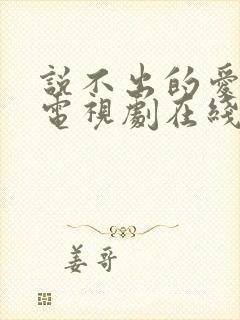 說不出的愛
電視劇在綫
姜哥